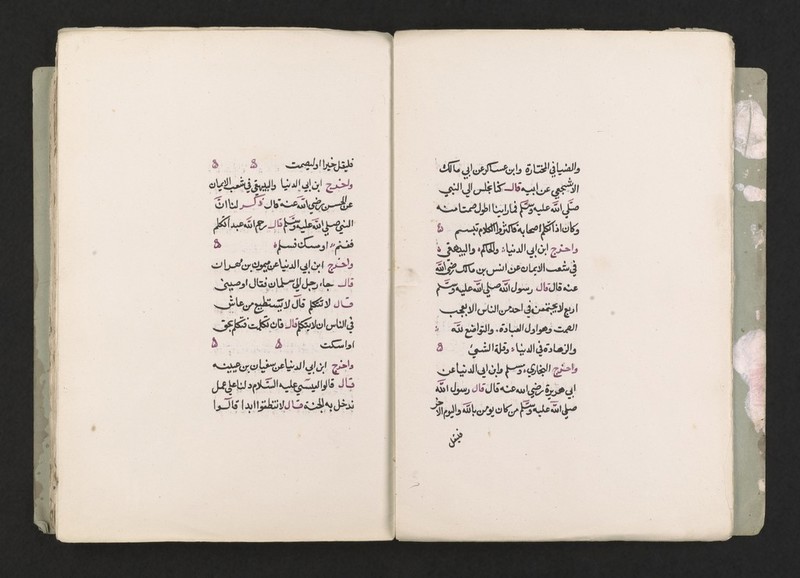 والضيا في المختارة وابن عساكر عن ابي مالك
الاشجعي عن ابيه قال كنا نجلس الي النبي
صلي الله عليه وسلم فما راينا اطول صمتا منه
وكان اذا تكلم اصحابه فاكثروا الكلام تبسم
واخرج ابن ابي الدنيا والحاكم والبيهقي
في شعب الايمان عن انس بن مالك رضي الله
عنه قال قال رسول الله صلي الله عليه وسلم
اربع لا يجتمعن في احد من الناس الا بعجب
الصمت وهو اول العبادة والتواضع لله
والزهادة في الدنيا وقلة الشي
واخرج البخاري ومسلم وابن ابي الدنيا عن
ابي هريرة رضي الله عنه قال قال رسول الله
صلي الله عليه وسلم من كان يومن بالله واليوم الاخر
فليقل
فليقل خيرا او ليصمت
واخرج ابن ابي الدنيا والبيهقي في شعب الايمان
عن الحسن رضي الله عنه قال ذكر لنا ان
النبي صلي الله عليه وسلم قال رحم الله عبدا تكلم
فغنم او سكت فسلم
واخرج ابن ابي الدنيا عن ميمون بن مهران
قال جاء رجل الي سلمان فقال اوصيني
قال لا تتكلم قال لا يستطيع من عاش
في الناس ان لا يتكلم قال فان تكلمت فتكلم بحق
او اسكت
واخرج ابن ابي الدنيا عن سفيان بن عيينه
قال قالوا لعيسي عليه السلام دلنا علي عمل
ندخل به الجنة قال لا تنطقوا ابدا قالوا